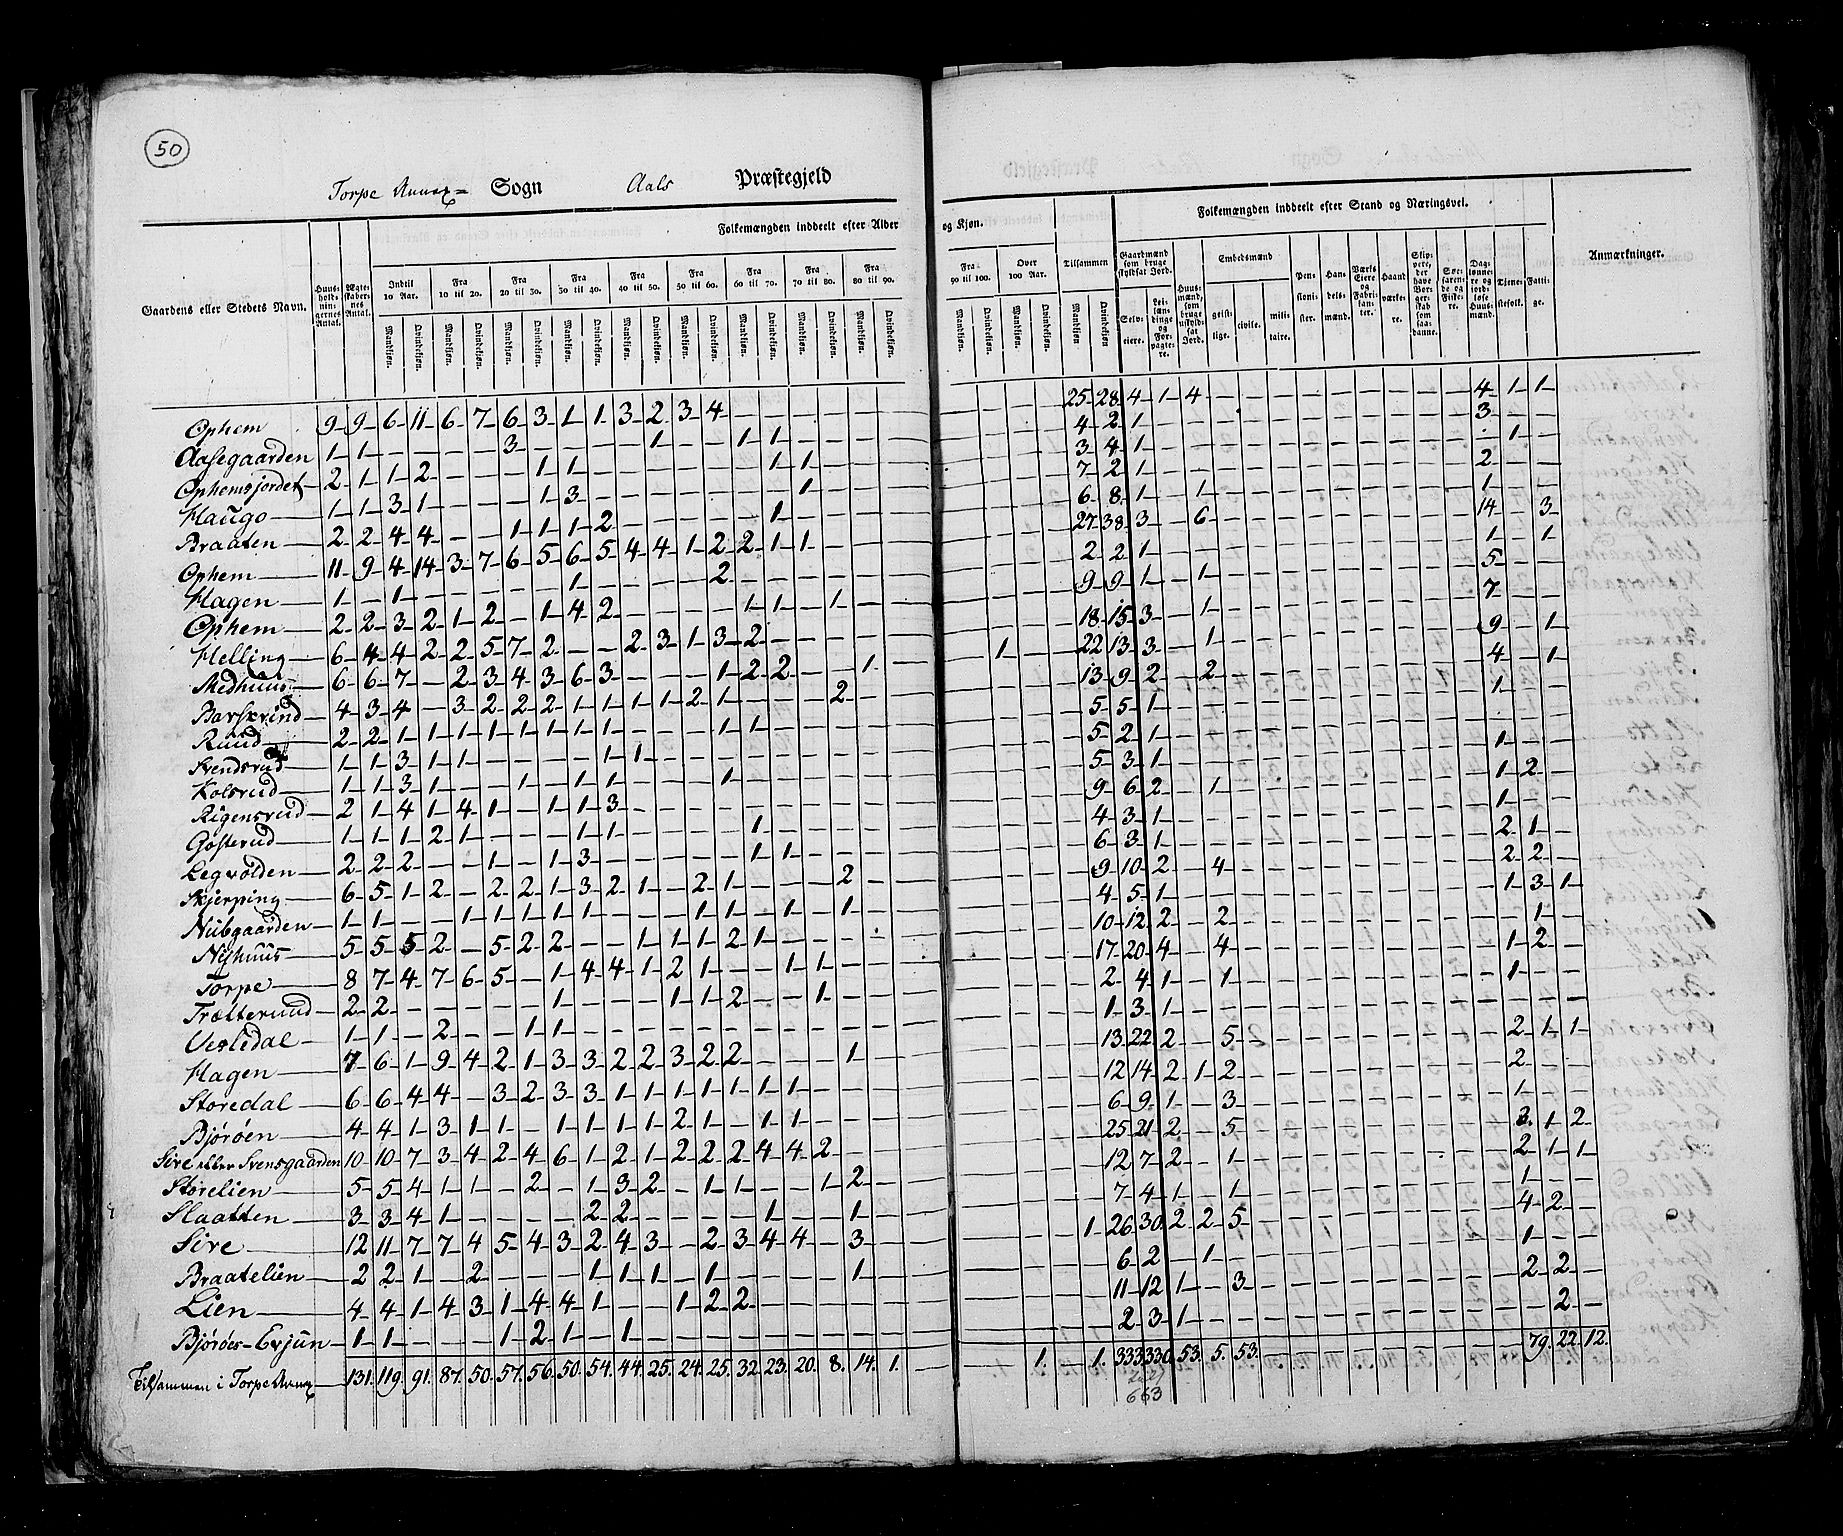 50
Torpe Annex= Sogn Aals Præstegjeld
Folkemængden inddeelt efter Alder og Kjøn.
Folkemængden inddeelt efter Stand og Næringsvei.
Gaardens eller Stedets Navn.
Huusholdningernes Antal.
Ægteskabernes Antal.
Indtil 10 Aar.
Fra 10 til 20.
Fra 20 til 30.
Fra 30 til 40.
Fra 40 til 50.
Fra 50 til 60.
Fra 60 til 70.
Fra 70 til 80.
Fra 80 til 90.
Fra 90 til 100.
Over 100 Aar.
Tilsammen
Mandkjøn. Qvindekjøn.
Gaardmænd som bruge skyldsat Jord.
Selveiere.
Leilændinge og Forpagtere.
Huusmænd, som bruge uskyldsat Jord.
Embedsmænd
geistlige. civile. militaire.
Pensionister.
Handelsmænd.
Værks Eiere og Fabrikanter.
Haandværkere.
Skippere, der have Borgerskab som saadanne.
Søefarende og Fiskere.
Daglønnere og jordløse Huusmænd.
Tjenestefolk.
Fattige.
Anmærkninger.
Ophem 9 9 6 11 6 7 6 3 1 1 3 2 3 4 25 28 4 1 4 4 1 1
Aasegaarden 1 1 3 1 1 1 4 2 1 3
Ophemsjordet 2 1 1 2 1 1 1 1 3 4 1 1
Haugo 1 1 3 1 1 3 1 7 2 1 2
Braaten 2 2 4 4 1 1 1 2 1 6 8 1 1 1
Ophem 11 9 4 14 3 7 6 5 6 5 4 4 1 2 2 1 1 27 38 3 6 14 3
Hagen 1 1 1 2 2 2 1 1 1
Ophem 2 2 3 2 1 2 1 4 2 1 1 1 9 9 1 1 5
Helling 6 4 4 2 2 5 7 2 2 3 1 3 2 18 15 3 1 7
Medhuus 6 6 7 2 3 4 3 6 3 1 2 2 1 1 22 13 3 1 9 1
Barskrind 4 3 4 3 2 2 2 1 1 1 1 2 1 2 13 9 2 2 4 1
Ruud 2 2 1 1 1 1 1 1 1 1 1 1 5 5 1 1
Svendsrud 1 1 3 1 1 1 1 5 2 1
Kolsrud 1 1 3 1 1 1 1 1 5 3 1 1
Rigensrud 2 1 4 1 4 1 1 1 3 9 6 2 1 1 2
Gosterud 1 1 1 2 1 1 1 1 4 3 1 1
Legvolden 2 2 2 1 1 3 1 1 6 3 1 2 1
Skjerping 6 5 1 2 2 2 1 3 2 1 2 1 2 9 10 2 4 2 2
Nubgaarden 1 1 1 1 1 1 1 1 1 1 1 4 5 1 1 3 1
Nyhuus 5 5 5 2 5 2 2 1 1 1 2 1 10 12 2 2 1
Torpe 8 7 4 7 6 5 1 4 4 1 2 1 1 1 17 20 4 4 1 2
Trætterud 2 2 1 1 1 2 1 2 4 1 1 1
Vesledal 1 1 2 1 1 1 3 1
Hagen 7 6 1 9 4 2 1 3 3 2 2 3 2 2 1 13 22 2 5 2 1 1
Storedal 6 6 4 4 3 2 3 3 1 1 1 1 1 1 1 12 14 2 1 2 2
Bjørøen 4 4 1 3 1 1 1 1 1 1 2 1 1 1 6 9 1 3 1
Sire eller Svensgaarden 10 10 7 3 4 2 4 6 1 2 1 2 2 2 4 4 2 25 21 2 5 3 1 2
Storelien 5 5 4 1 1 2 1 3 2 1 1 1 2 12 7 2 1 2 1 1
Slaatten 3 3 4 1 2 2 1 1 7 4 1 1 1
Sire 12 11 7 7 4 5 4 3 2 4 3 2 3 4 4 3 1 26 30 2 2 5 4 2
Braatelien 2 2 1 2 1 1 1 1 1 6 2 1 1
Lien 4 4 1 4 3 1 4 4 1 1 2 2 11 12 1 3 2 2
Bjørøes-Evjun 1 1 1 2 1 1 2 3 1 2
Tilsammen i Torpe Annex 131. 119. 91. 87. 50. 57. 56. 50. 54. 44. 25. 24. 25. 32. 23. 20. 8. 14. 1. 1. 1. 333 330. 53. 5. 53. 79. 22. 12.
663